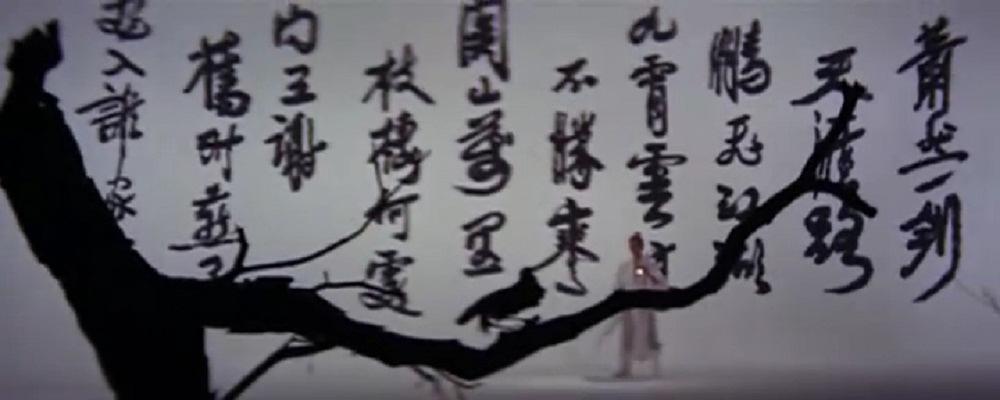 蕭然一劍
天涯路
鵬飛江湖
九霄雲
不勝
關山萬里
枝棲何處
内王謝
舊时燕子
飛入誰家